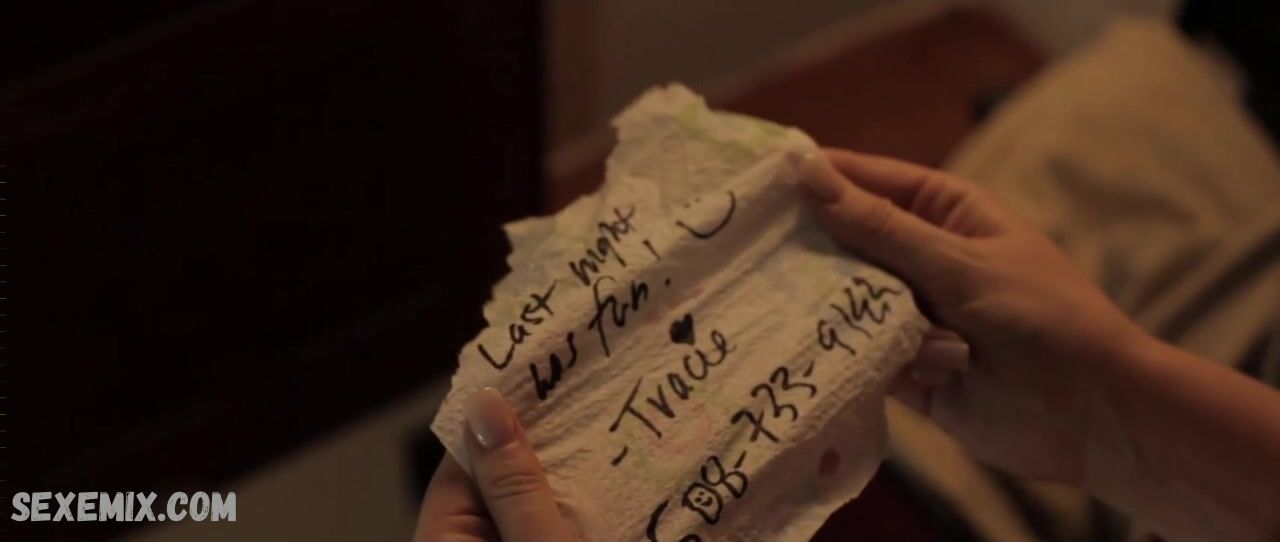 Last night
was fun! :)
♥
-Tracie
508-733-9142
SEXEMIX.COM